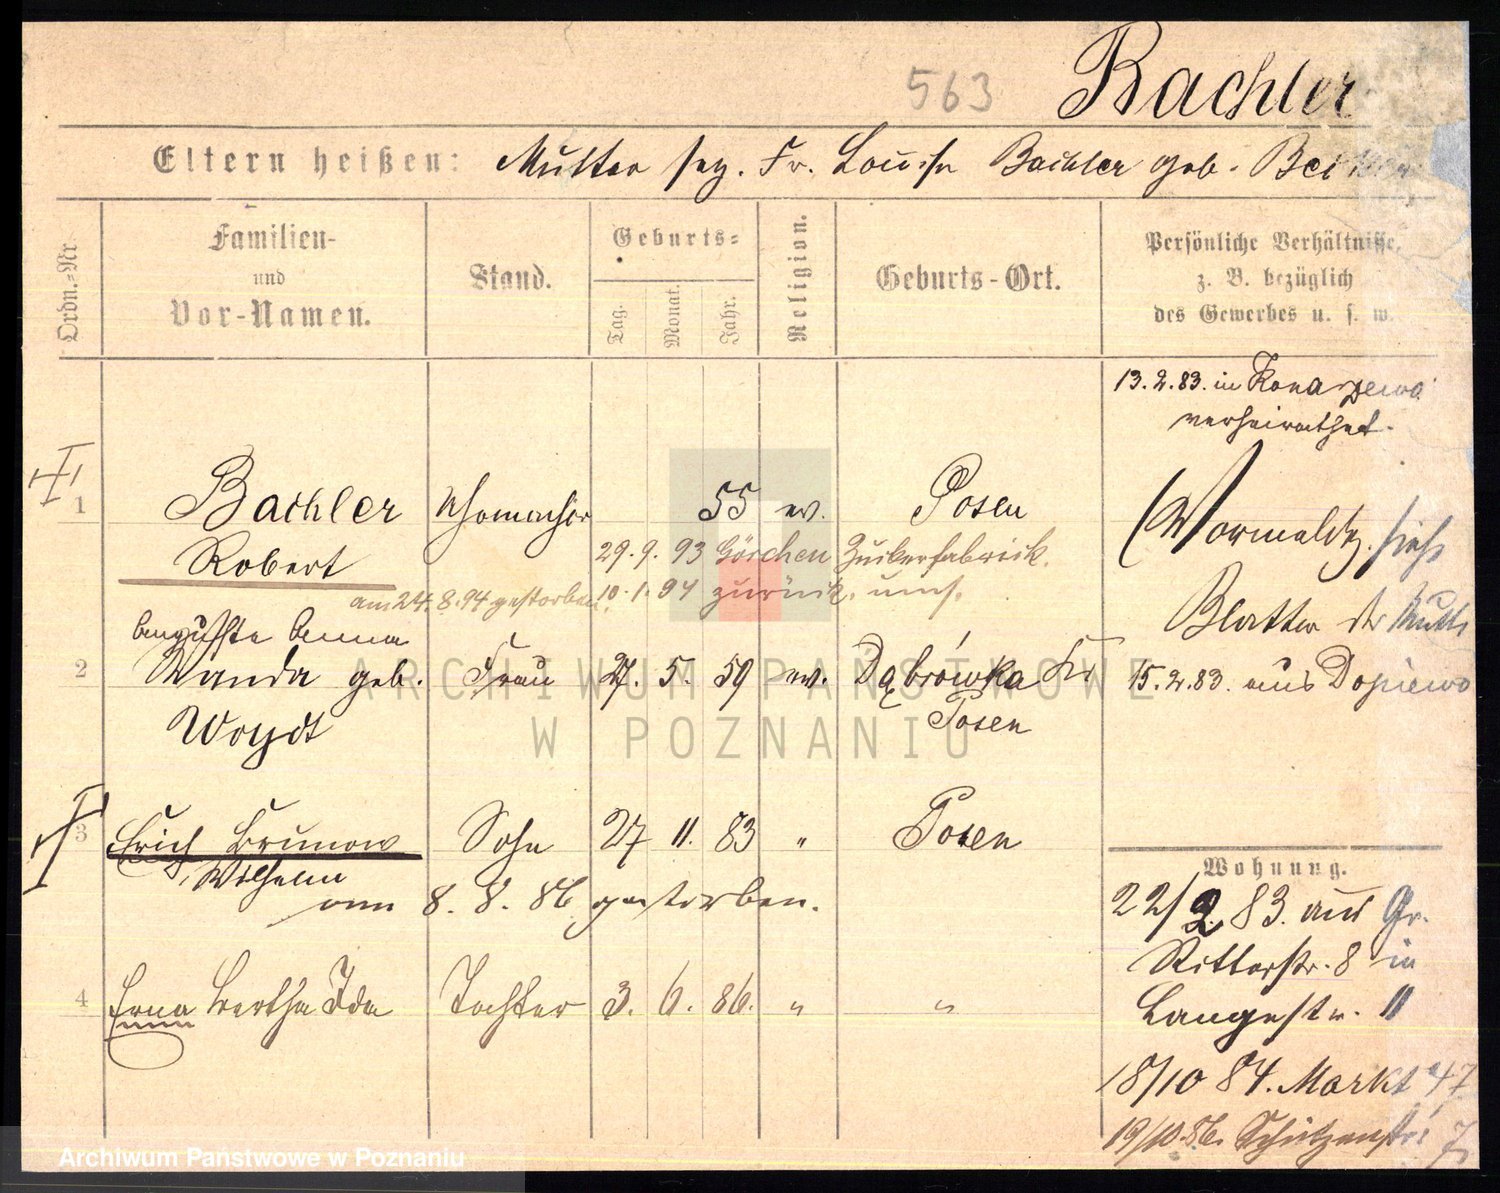 563 Bachler
Eltern heißen: Mutter sep. Fr. Louise Bachler geb.
Ordn.=Nr.
Familien-
und
Vor-Namen.
Stand.
Geburts=
Tag.
Monat.
Jahr.
Religion.
Geburts-Ort.
Persönliche Verhältnisse,
z. B. bezüglich
des Gewerbes u. s. w.
13.2.83. in Konarzewo
verheirathet.
1 Bachler Uhrmacher 55 ev. Posen
Robert
29.9.93 Görchen Zuckerfabrick.
am 24.8.94 gestorben. 10.1.94 zurück.
siehe
Blatter der Mutter
Auguste Anna
2 Wanda geb. Frau 27. 5. 59 ev. Dąbrówka Kr.
Woydt Posen
15.2.83. aus Dopiewo
3 Erich Brunow Sohn 27 11. 83 " Posen
Wilhelm
am 8. 8. 86 gestorben.
4 Erna Bertha Ida Tochter 3. 6. 86. " "
Wohnung.
22/2 83. aus Gr.
Ritterstr. 8 in
Langestr. 11
18/10 84. Markt 47
19/10.86. Schützenstr. 7
ARCHIWUM PAŃSTWOWE
W POZNANIU
Archiwum Państwowe w Poznaniu